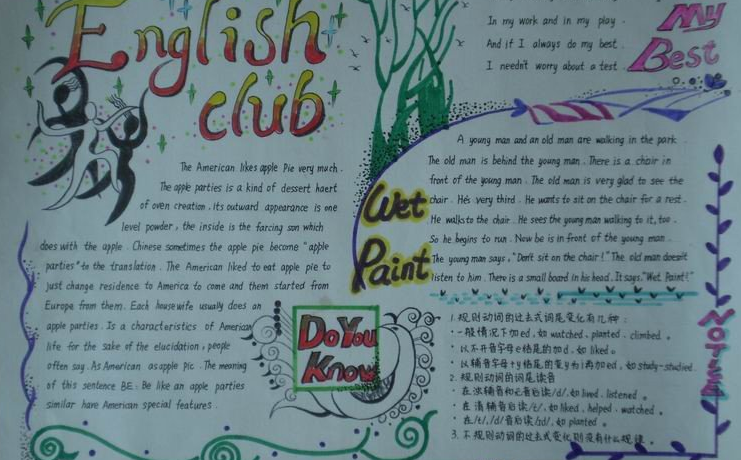 English
club
The American likes apple Pie very much.
The apple parties is a kind of dessert haert
of oven creation. its outward appearance is one
level powder, the inside is the farcing son which
does with the apple. Chinese sometimes the apple pie become "apple
parties" to the translation. The American liked to eat apple pie to
just change residence to America to come and them started from
Europe from them. Each housewife usually does an
apple parties. Is a characteristics of American
life for the sake of the elucidation, people
often say. As American as apple pic. The meaning
of this sentence BE. Be like an apple parties
similar have American special features.
Do You
Know
In my work and in my play.
And if I always do my best.
I needn't worry about a test.
My
Best
Wet
Paint
A young man and an old man are walking in the park.
The old man is behind the young man. There is a chair in
front of the young man. The old man is very glad to see the
chair. He's very third. He wants to sit on the chair for a rest.
He walks to the chair. He sees the young man walking to it, too.
So he begins to run. Now be is in front of the young man.
The young man says, "Don't sit on the chair!" The old man doesn't
listen to him. There is a small board in his head. It says, "Wet Paint!"
1. 规则动词的过去式词尾变化有几种:
·一般情况下加ed, 如 watched, planted, climbed。
·以不升音字母e结尾的加d, 如 liked。
·以辅音字母+y结尾的变y为i再加ed, 如 study-studied
2. 规则动词的词尾读音
·在浊辅音和元音后读/d/, 如 lived, listened。
·在清辅音后读/t/, 如 liked, helped, watched。
·在/t/,/d/音后读/id/, 如 planted。
3. 不规则动词的过去式变化则没有什么规律。